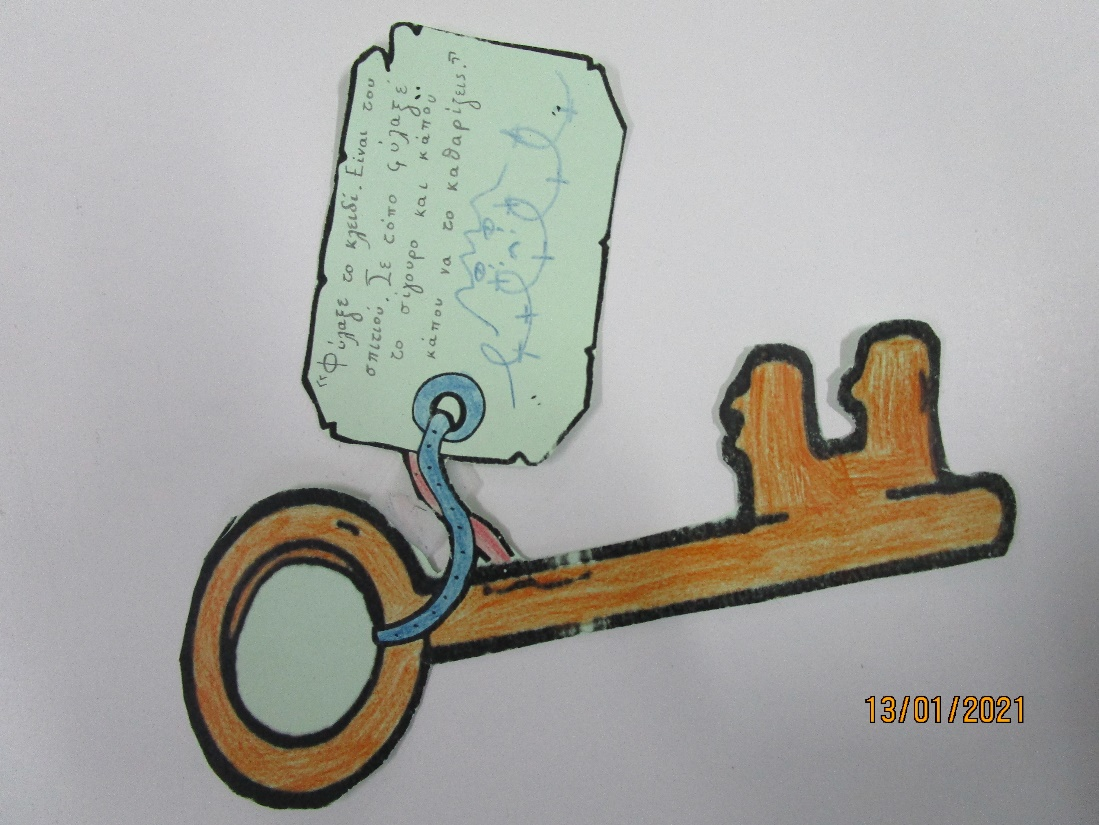 “Φύλαξε το κλειδί. Είναι του
σπιτιού. Σε τόπο φύλαξέ
το σίγουρο και κάπου
κάπου να το καθαρίζεις.”
13/01/2021